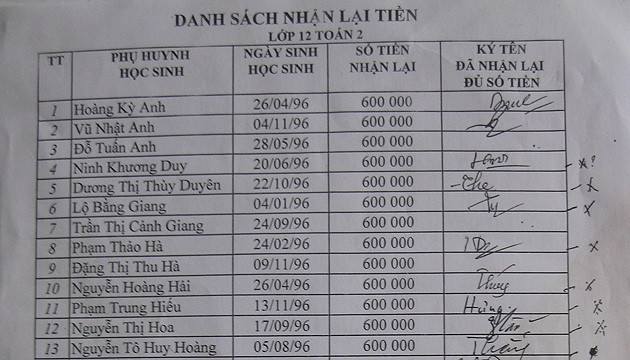 DANH SÁCH NHẬN LẠI TIỀN
LỚP 12 TOÁN 2
TT PHỤ HUYNH HỌC SINH NGÀY SINH HỌC SINH SỐ TIỀN NHẬN LẠI KÝ TÊN ĐÃ NHẬN LẠI ĐỦ SỐ TIỀN
1 Hoàng Kỳ Anh 26/04/96 600 000
2 Vũ Nhật Anh 04/11/96 600 000
3 Đỗ Tuấn Anh 28/05/96 600 000
4 Ninh Khương Duy 20/06/96 600 000
5 Dương Thị Thùy Duyên 22/10/96 600 000 The
6 Lộ Bằng Giang 04/01/96 600 000
7 Trần Thị Cảnh Giang 24/09/96 600 000
8 Phạm Thảo Hà 24/02/96 600 000
9 Đặng Thị Thu Hà 09/11/96 600 000
10 Nguyễn Hoàng Hải 26/04/96 600 000
11 Phạm Trung Hiếu 13/11/96 600 000 Hùng
12 Nguyễn Thị Hoa 17/09/96 600 000
13 Nguyễn Tô Huy Hoàng 05/08/96 600 000